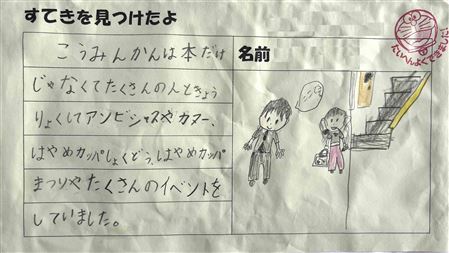 すてきを見つけたよ
名前
こうみんかんは本だけ
じゃなくてたくさんの人ときょう
りょくしてアンビシャスやカヌー、
はやめカッパしょくどう、はやめカッパ
まつりやたくさんのイベントを
していました。
たいへんよくできました